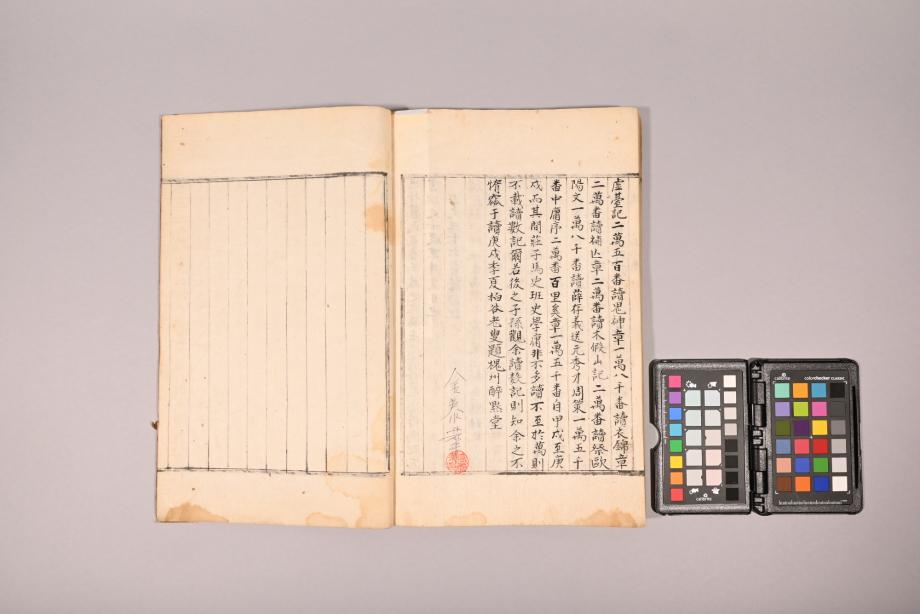 虛臺記二萬五百番讀鬼神章一萬八千番讀衣錦章
二萬番讀補亡章二萬番讀木假山記二萬番讀祭歐
陽文一萬八千番讀薛存義送元秀才周策一萬五千
番中庸序二萬番百里奚章一萬五千番自甲戌至庚
戌而其間莊子馬史班史學庸非不多讀不至於萬則
不載讀數記爾若後之子孫觀余讀數記則知余之不
惰窳于讀庚戌季夏栢谷老叟題槐州醉默堂
calibrite
calibrite
colorchecker CLASSIC